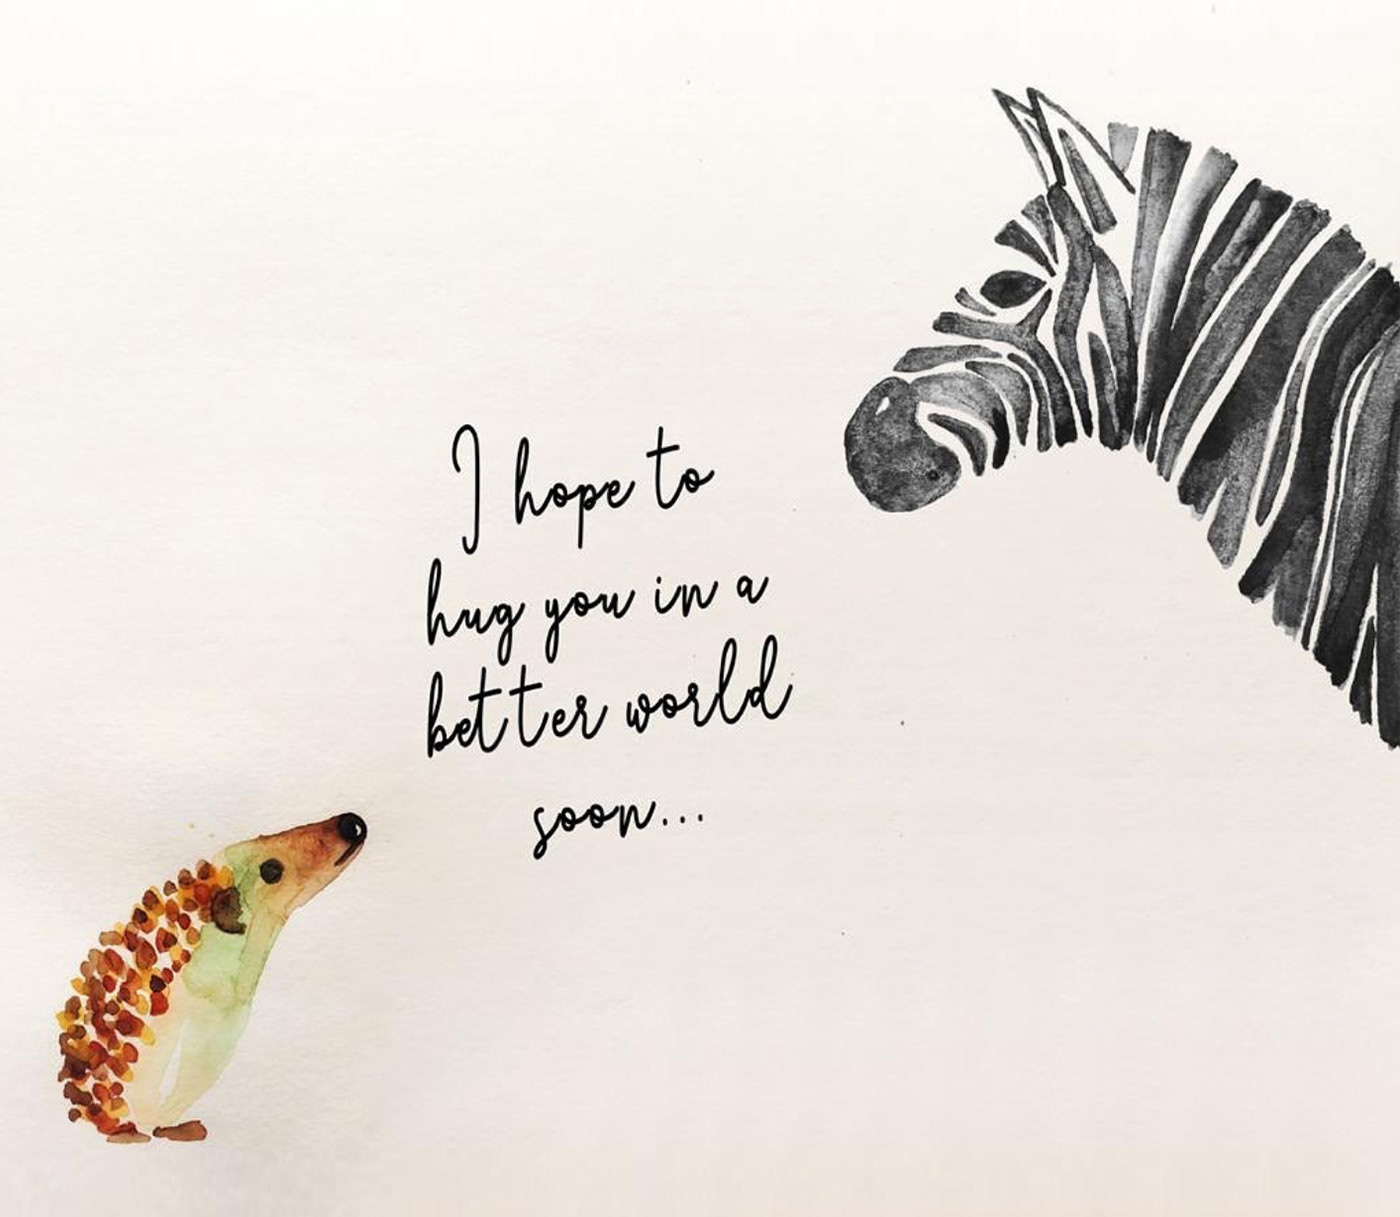 I hope to
hug you in a
better world
soon...